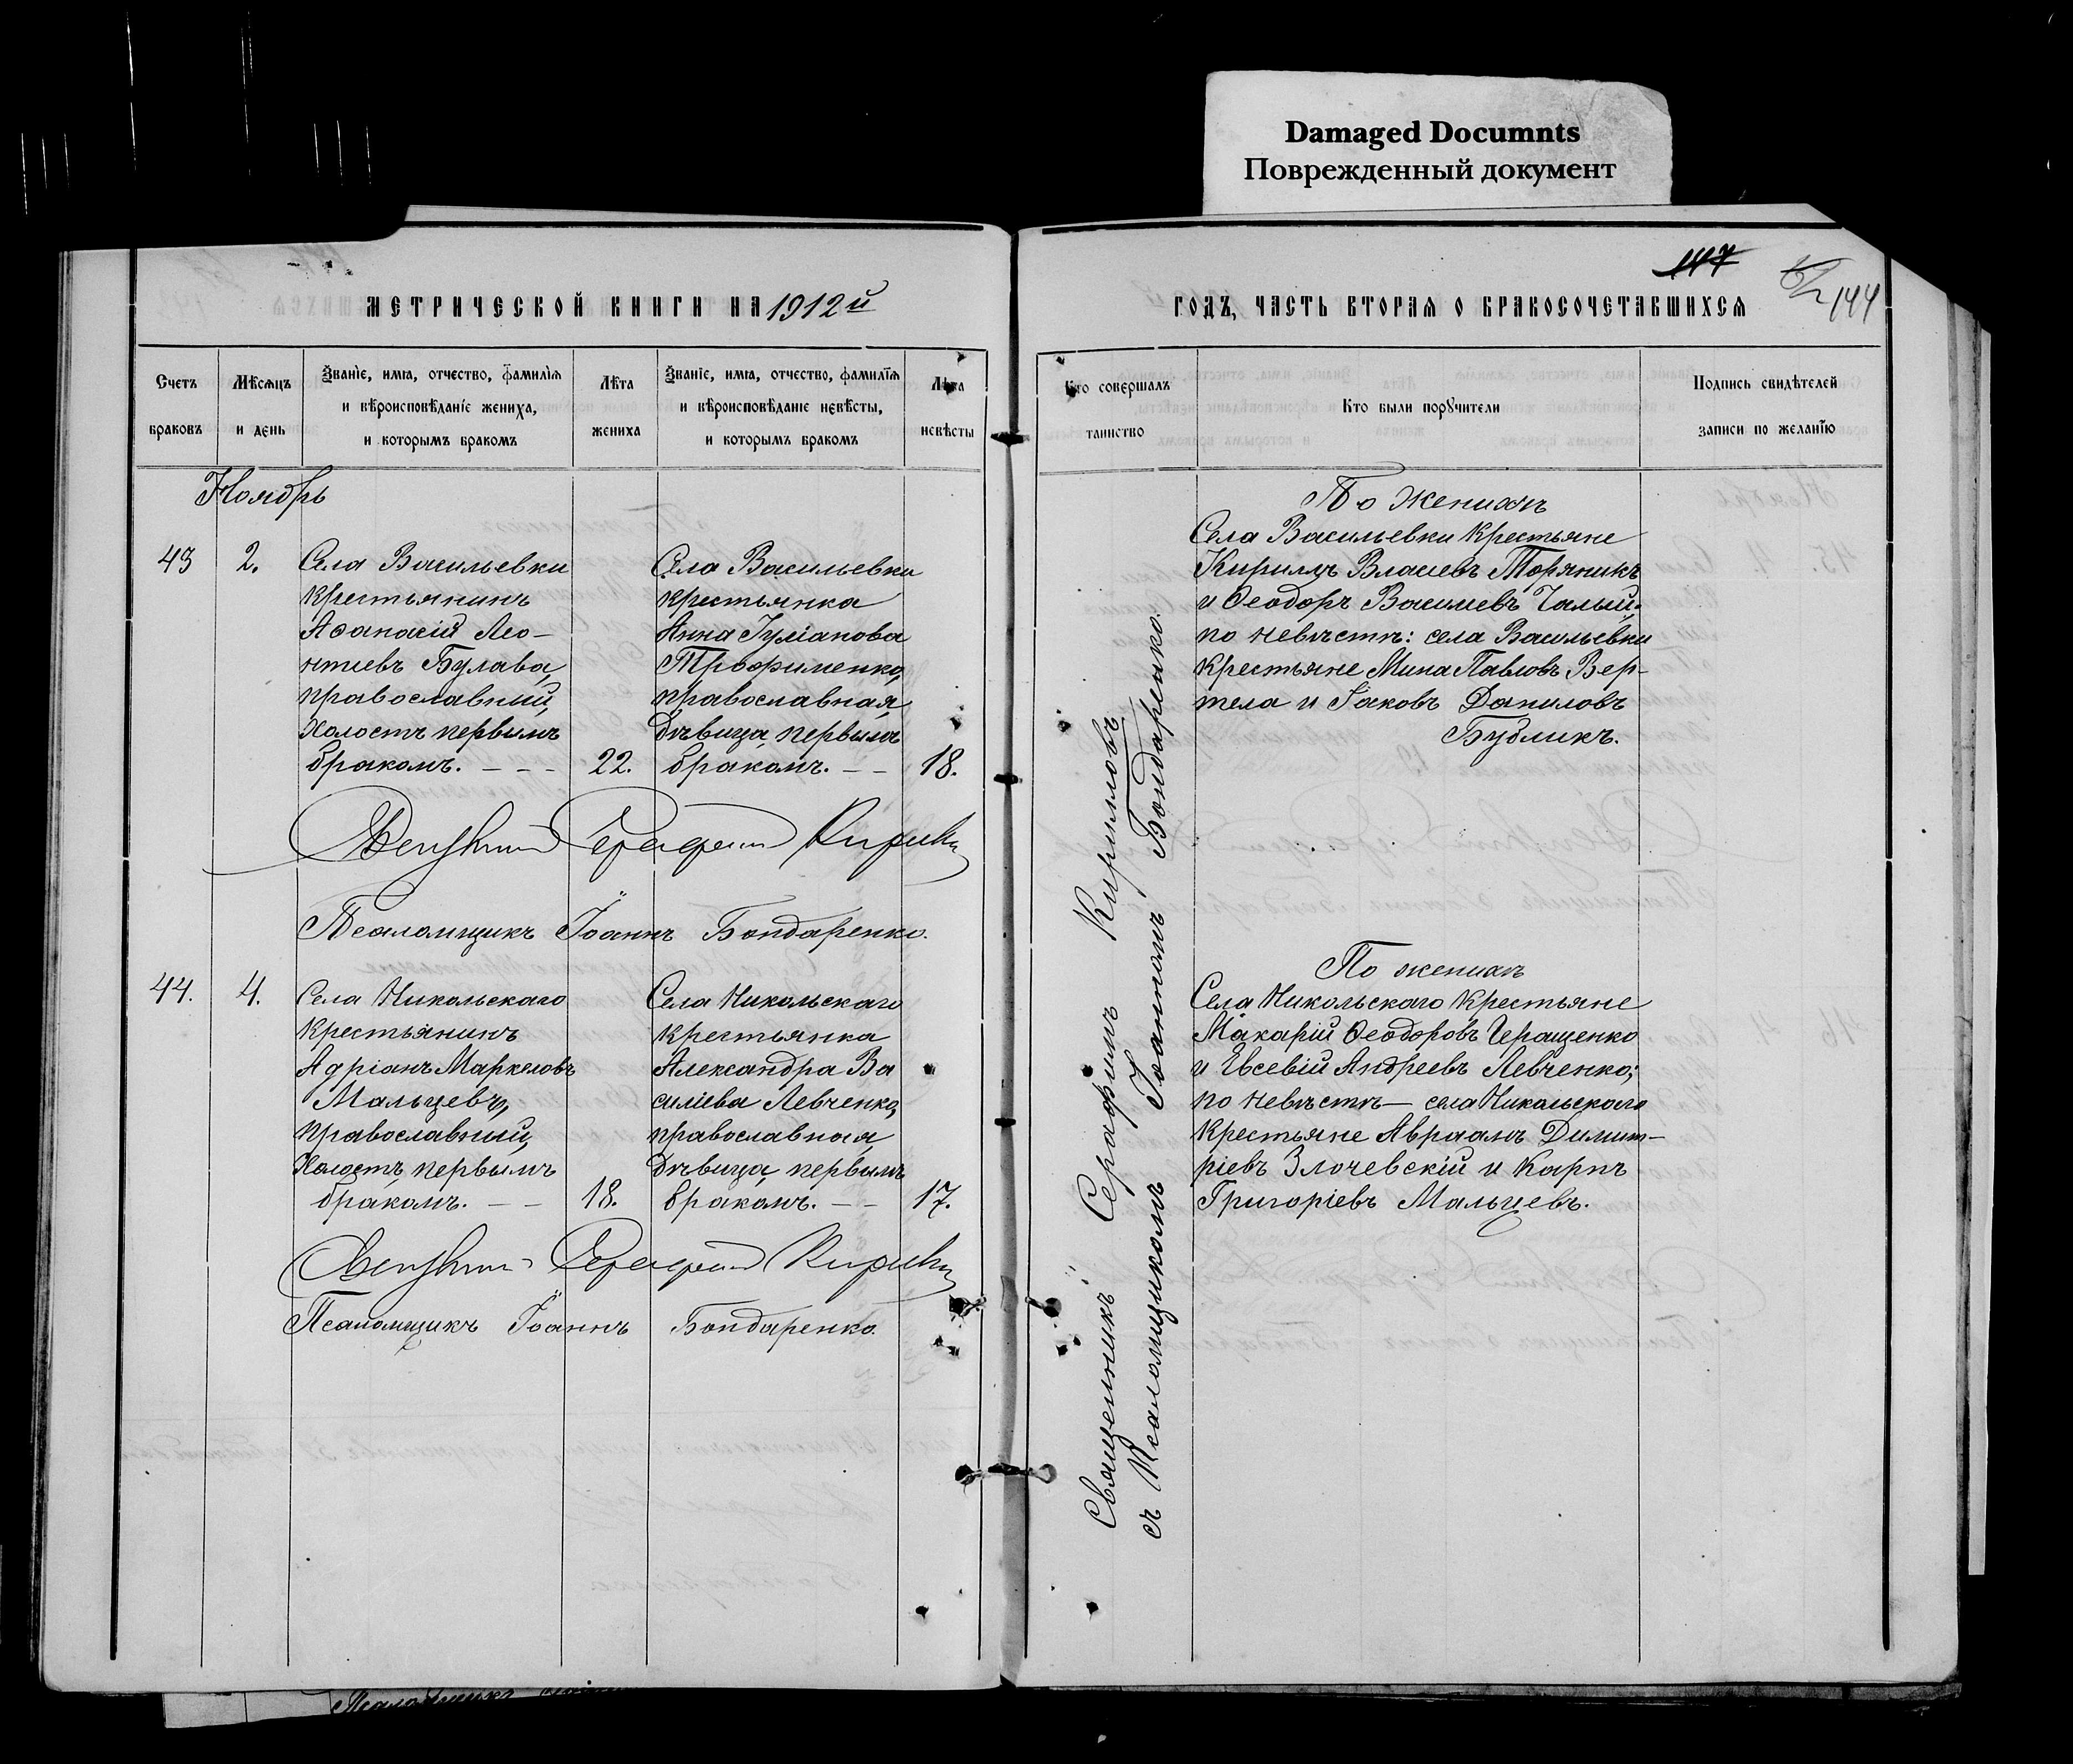 Damaged Documnts
Поврежденный документ
147
144
МЕТРИЧЕСКОЙ КНИГИ НА 1912й
ГОДЪ, ЧАСТЬ ВТОРАЯ О БРАКОСОЧЕТАВШИХСЯ
Счетъ
браковъ
Мѣсяцъ
и день
Званіе, имя, отчество, фамилія
и вѣроисповѣданіе жениха,
и которымъ бракомъ
Лѣта
жениха
Званіе, имя, отчество, фамилія
и вѣроисповѣданіе невѣсты,
и которымъ бракомъ
Лѣта
невѣсты
Кто совершалъ
таинство
Кто были поручители
Подпись свидѣтелей
записи по желанію
Ноябрь
43
2.
Села Васильевки
крестьянинъ
Аѳанасій Лео-
нтиевъ Булава,
православный,
холостъ первымъ
бракомъ. - - -
22.
Села Васильевки
крестьянка
Анна Іуліанова
Трофименко,
православная
дѣвица, первымъ
бракомъ. - -
18.
Священникъ Серафимъ Кириловъ
Псаломщикъ Іоаннъ Бондаренко.
44.
4.
Села Никольскаго
крестьянинъ
Адріанъ Маркеловъ
Мальцевъ,
православный,
холостъ, первымъ
бракомъ. - -
18.
Села Никольскаго
крестьянка
Александра Ва
силіева Левченко,
православная,
дѣвица, первымъ
бракомъ. - -
17.
Псаломщикъ Іоаннъ Бондаренко.
Священникъ Серафимъ Кириловъ
съ Псаломщикомъ Іоанномъ Бондаренко.
По женихѣ
Села Васильевки крестьяне
Кирилъ Власіевъ Торяникъ
и Ѳеодоръ Василіевъ Чалый;
по невѣстѣ: села Васильевки
крестьяне Мина Павловъ Вер-
тела и Іаковъ Даниловъ
Бубликъ.
По женихѣ
Села Никольскаго крестьяне
Макарій Ѳеодоровъ Геращенко
и Евсевій Андреевъ Левченко;
по невѣстѣ — села Никольскаго
крестьяне Авраамъ Димит-
ріевъ Злочевскій и Карпъ
Григоріевъ Мальцевъ.